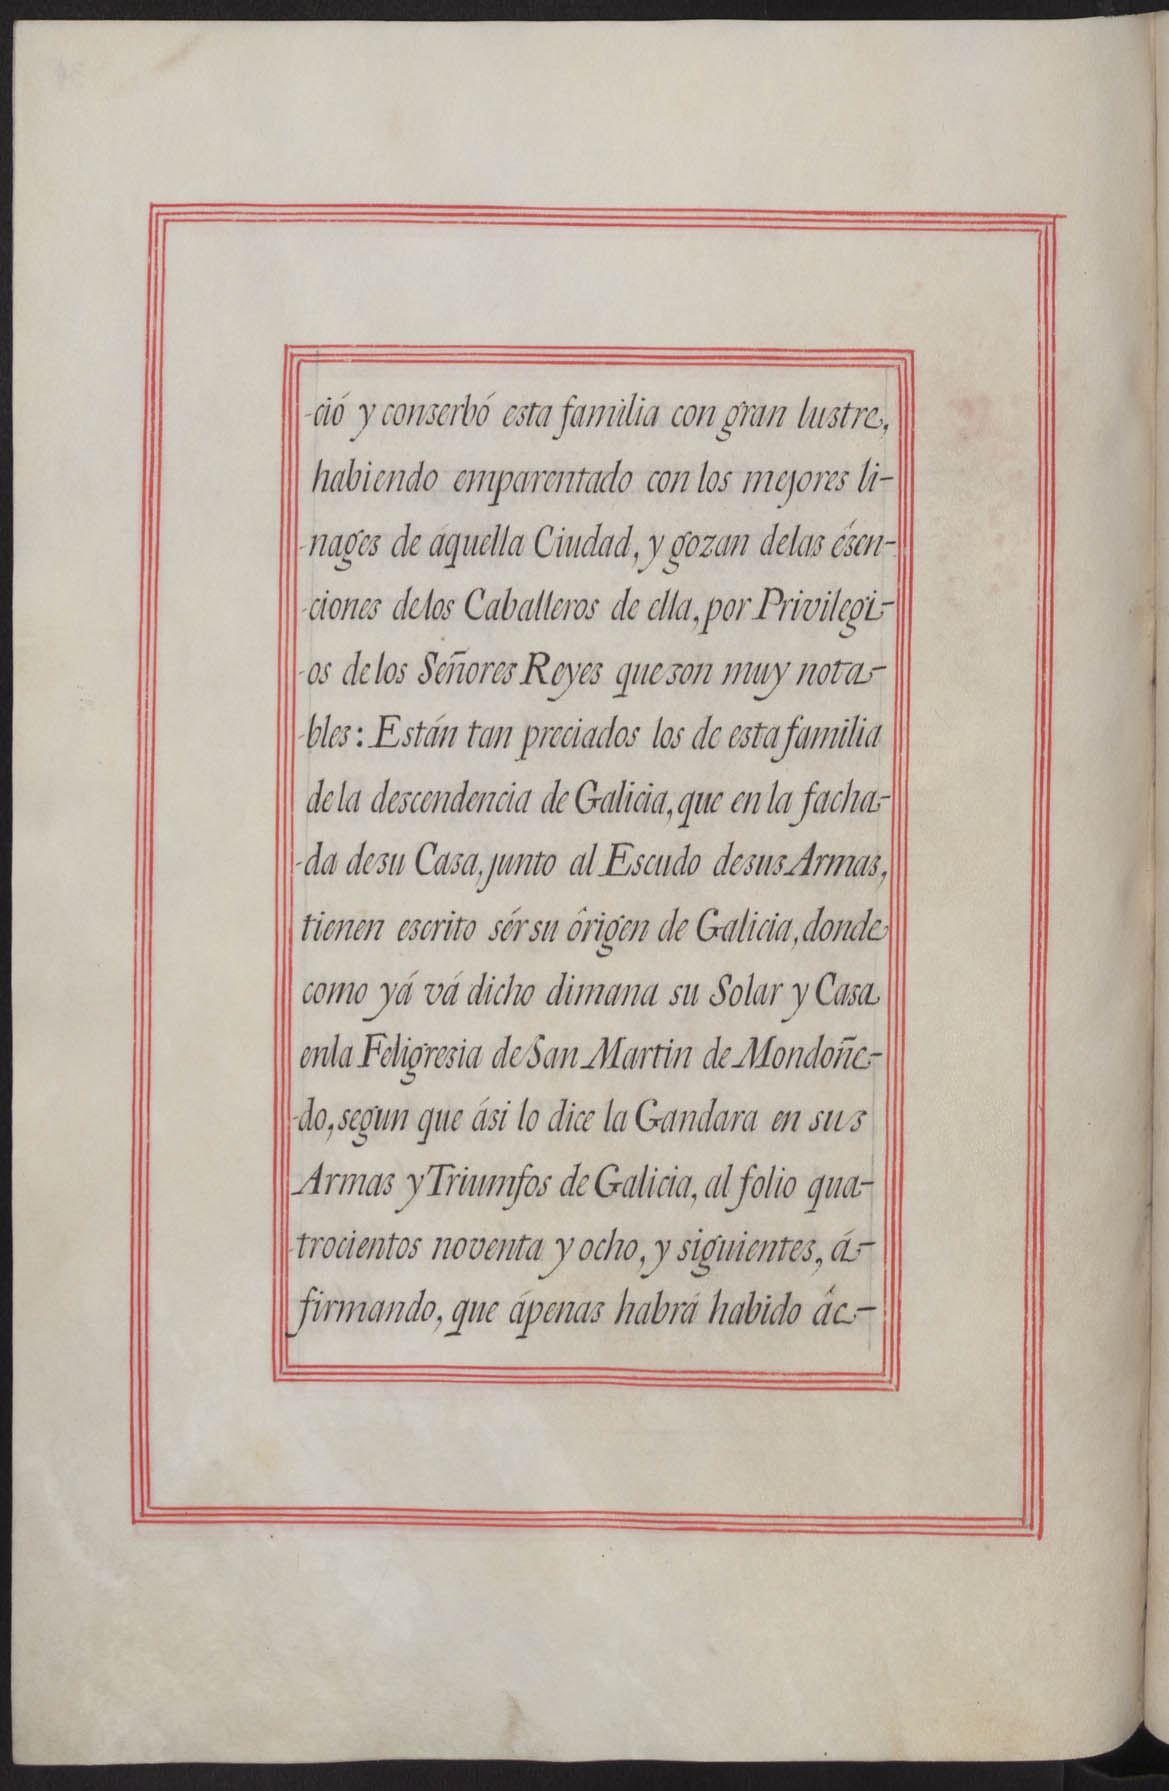 -ció y conserbó esta familia con gran lustre,
habiendo emparentado con los mejores li-
-nages de aquella Ciudad, y gozan delas ésen-
-ciones delos Caballeros de ella, por Privilegi-
-os de los Señores Reyes que son muy nota-
-bles: Están tan preciados los de esta familia
dela descendencia de Galicia, que en la facha-
-da desu Casa, junto al Escudo desus Armas,
tienen escrito sér su ôrigen de Galicia, donde
como yá vá dicho dimana su Solar y Casa
enla Feligresia de San Martin de Mondoñe-
-do, segun que ási lo dice la Gandara en sus
Armas y Triumfos de Galicia, al folio qua-
-trocientos noventa y ocho, y siguientes, á-
firmando, que ápenas habrá habido âc-